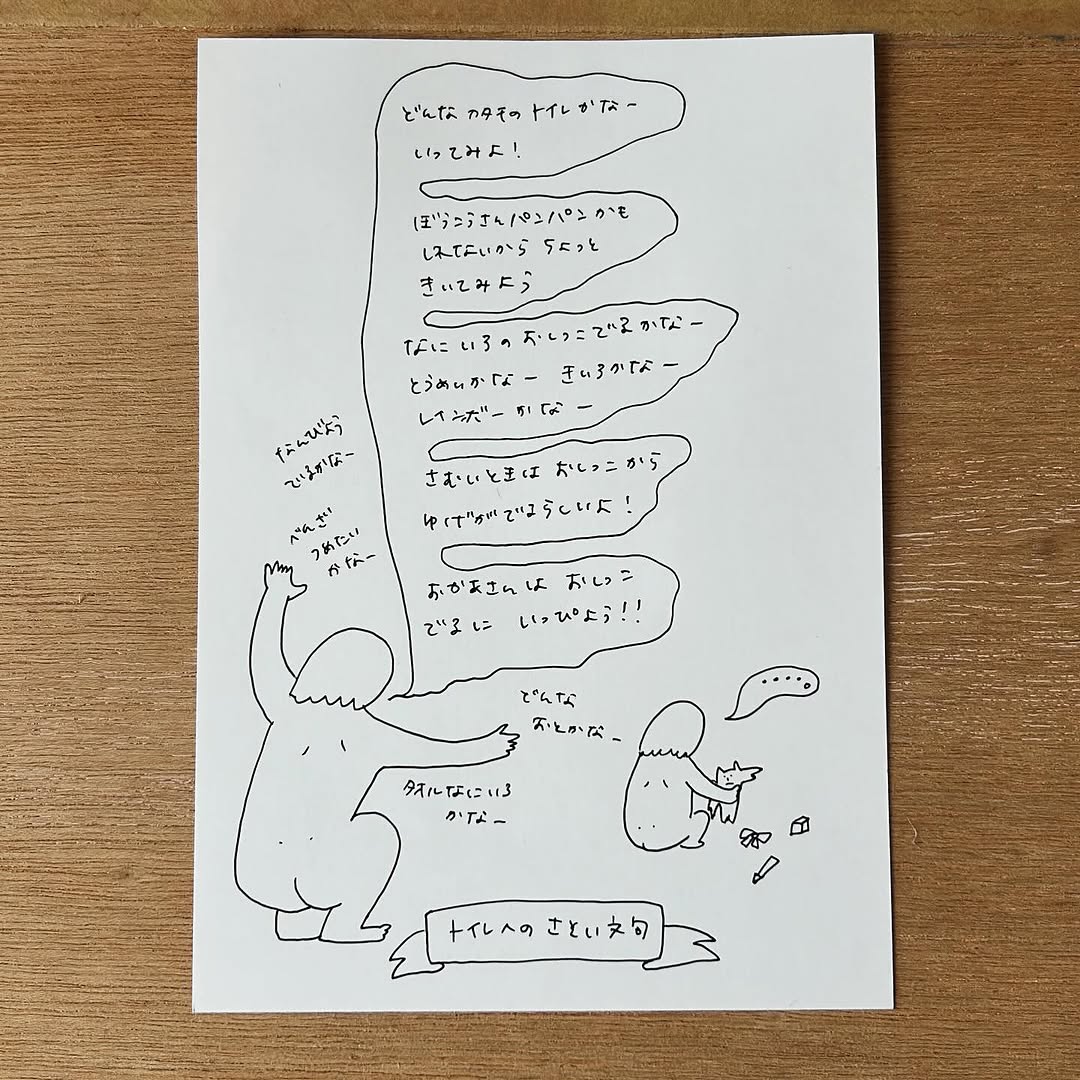 どんな カタチの トイレかなー
いってみよ！
ぼうこうさんパンパン かも
しれないから ちょっと
きいてみよう
なに いろの おしっこでるかなー
とうめいかなー きいろかなー
レインボーかなー
さむいときは おしっこから
ゆげがでるらしいよ！
おかあさんは おしっこ
でるに いっぴょう！！
なんびょう
でるかなー
べんざ
つめたい
かなー
どんな
おとかなー
タオルなにいろ
かなー
・・・・。
トイレへの さそい文句